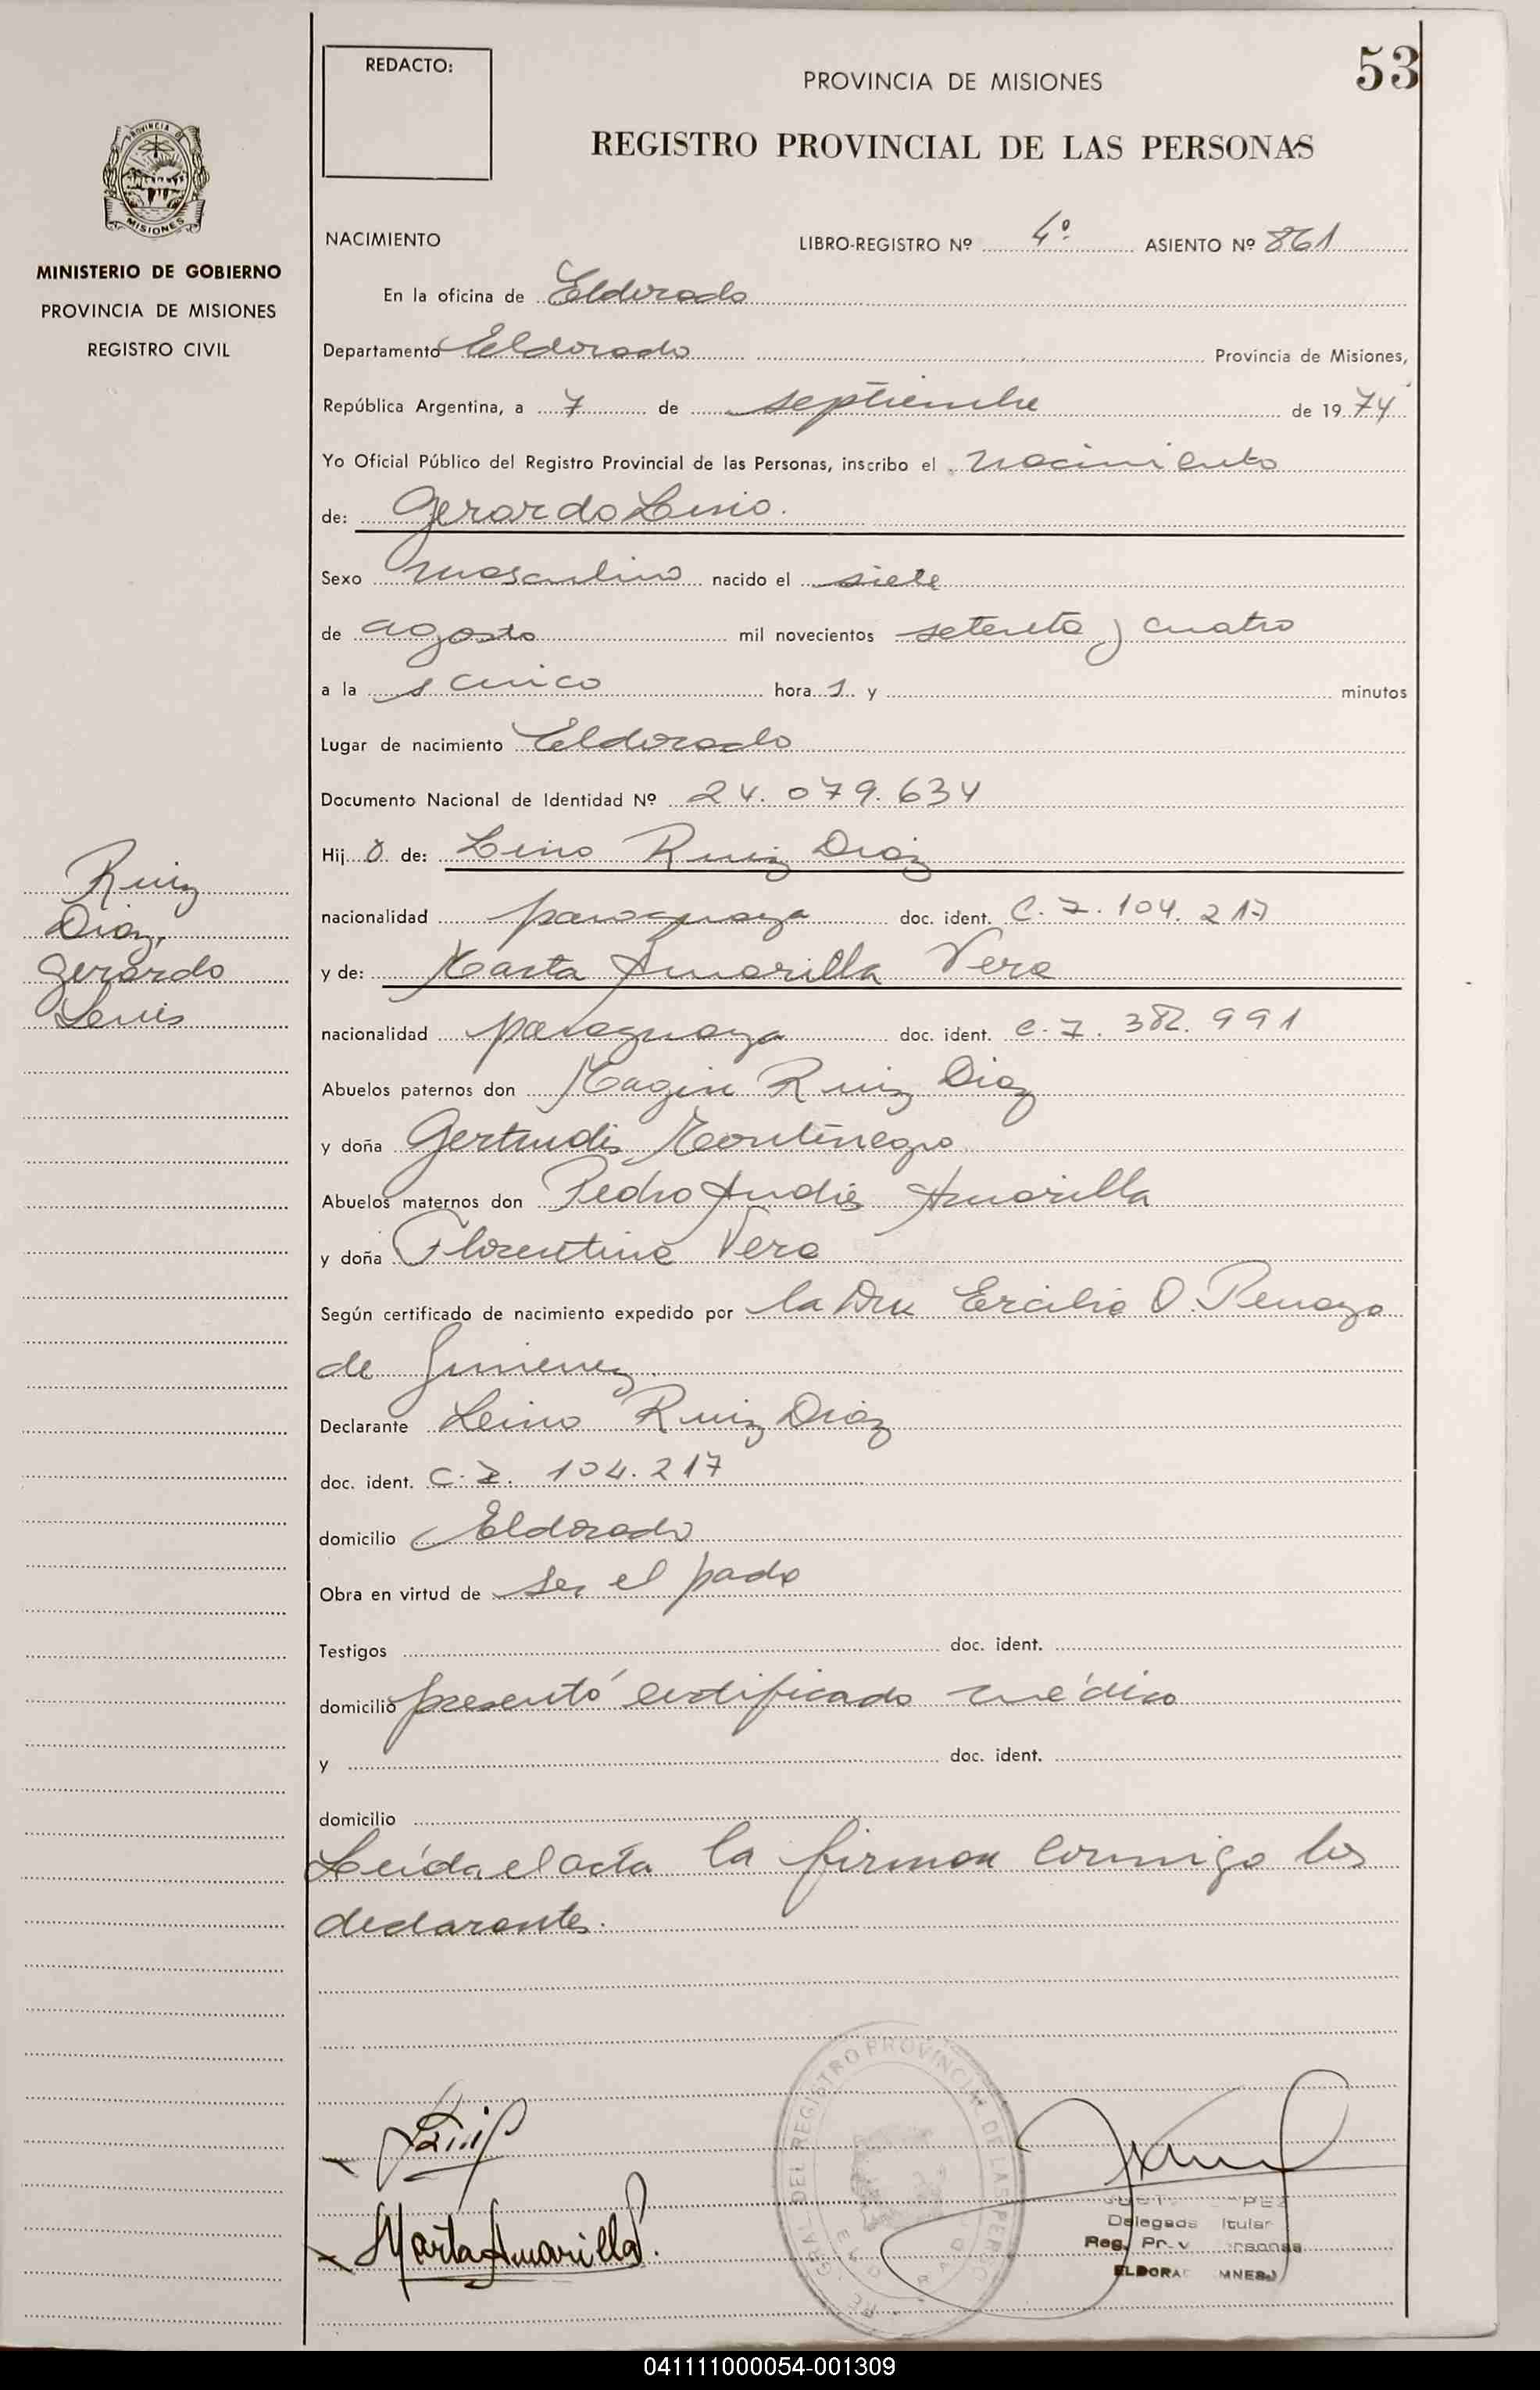 REDACTO:
PROVINCIA DE MISIONES
53
REGISTRO PROVINCIAL DE LAS PERSONAS
PROVINCIA DE
MISIONES
MINISTERIO DE GOBIERNO
PROVINCIA DE MISIONES
REGISTRO CIVIL
NACIMIENTO LIBRO-REGISTRO Nº 4º ASIENTO Nº 861
En la oficina de Eldorado
Departamento Eldorado Provincia de Misiones,
República Argentina, a 7 de septiembre de 19 74
Yo Oficial Público del Registro Provincial de las Personas, inscribo el nacimiento
de: Gerardo
Sexo masculino nacido el siete
de agosto mil novecientos setenta y cuatro
a la s cinco hora s y minutos
Lugar de nacimiento Eldorado
Documento Nacional de Identidad Nº 24.079.634
Hij o de: Lino Ruiz Diaz
nacionalidad paraguaya doc. ident. C. 7. 104. 217
y de: Marta Amarilla Vera
nacionalidad paraguaya doc. ident. C. 7. 382. 991
Abuelos paternos don Magin Ruiz Diaz
y doña Gertrudis Montenegro
Abuelos maternos don Pedro Andrés Amarilla
y doña Florentina Vera
Según certificado de nacimiento expedido por la Dra Ercilia O. Penayo
de Gimenez
Declarante Lino Ruiz Diaz
doc. ident. C. 7. 104. 217
domicilio Eldorado
Obra en virtud de ser el padre
Testigos doc. ident.
domicilio presentó certificado médico
y doc. ident.
domicilio
Leída el acta la firman conmigo los
declarantes.
Ruiz
Diaz,
Gerardo
Marta Amarilla.
Delegado
Reg.
ELDORA
041111000054-001309